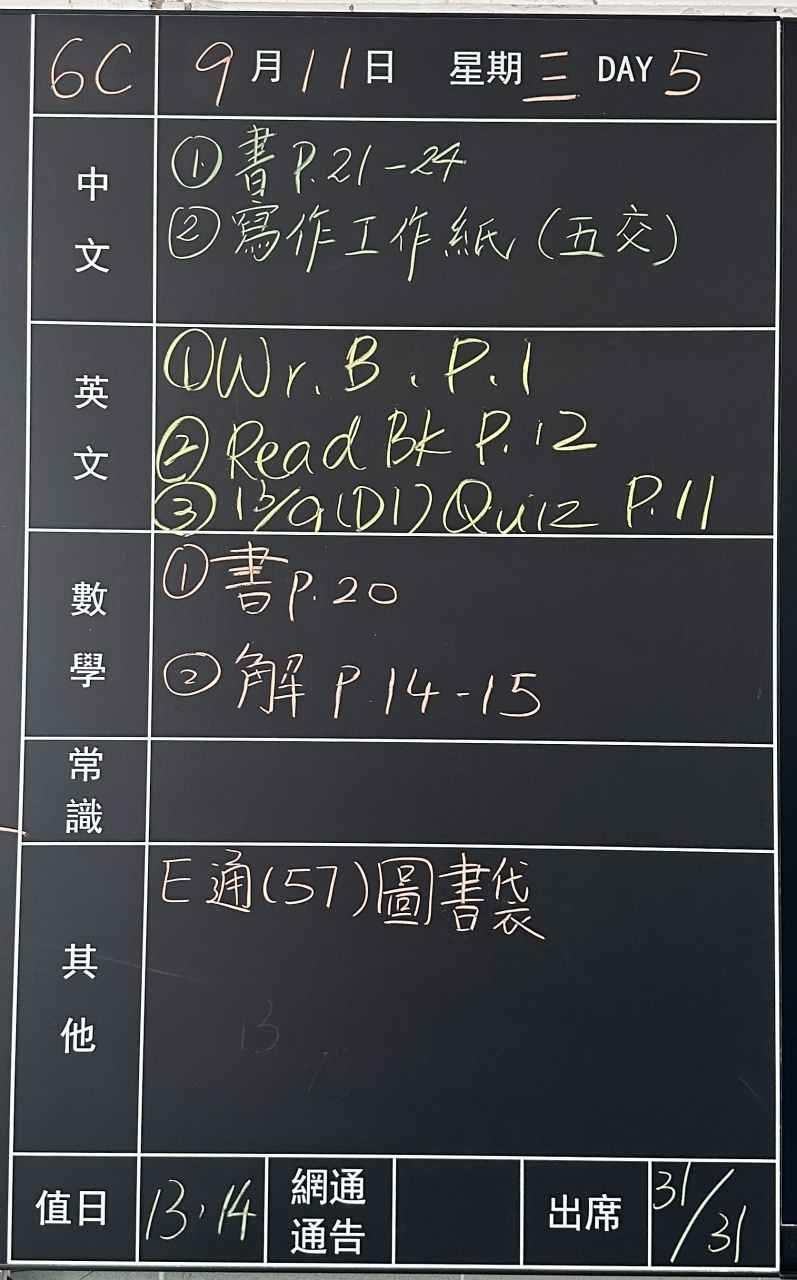 6C 9月11日 星期三 DAY 5
中文
①書P.21-24
②寫作工作紙(五交)
英文
①Wr. B. P.1
②Read Bk P.12
③13/9(D1)Quiz P.11
數學
①書p.20
②解P.14-15
常識
其他
E通(57)圖書袋
值日 13.14 網通通告 出席 31/31